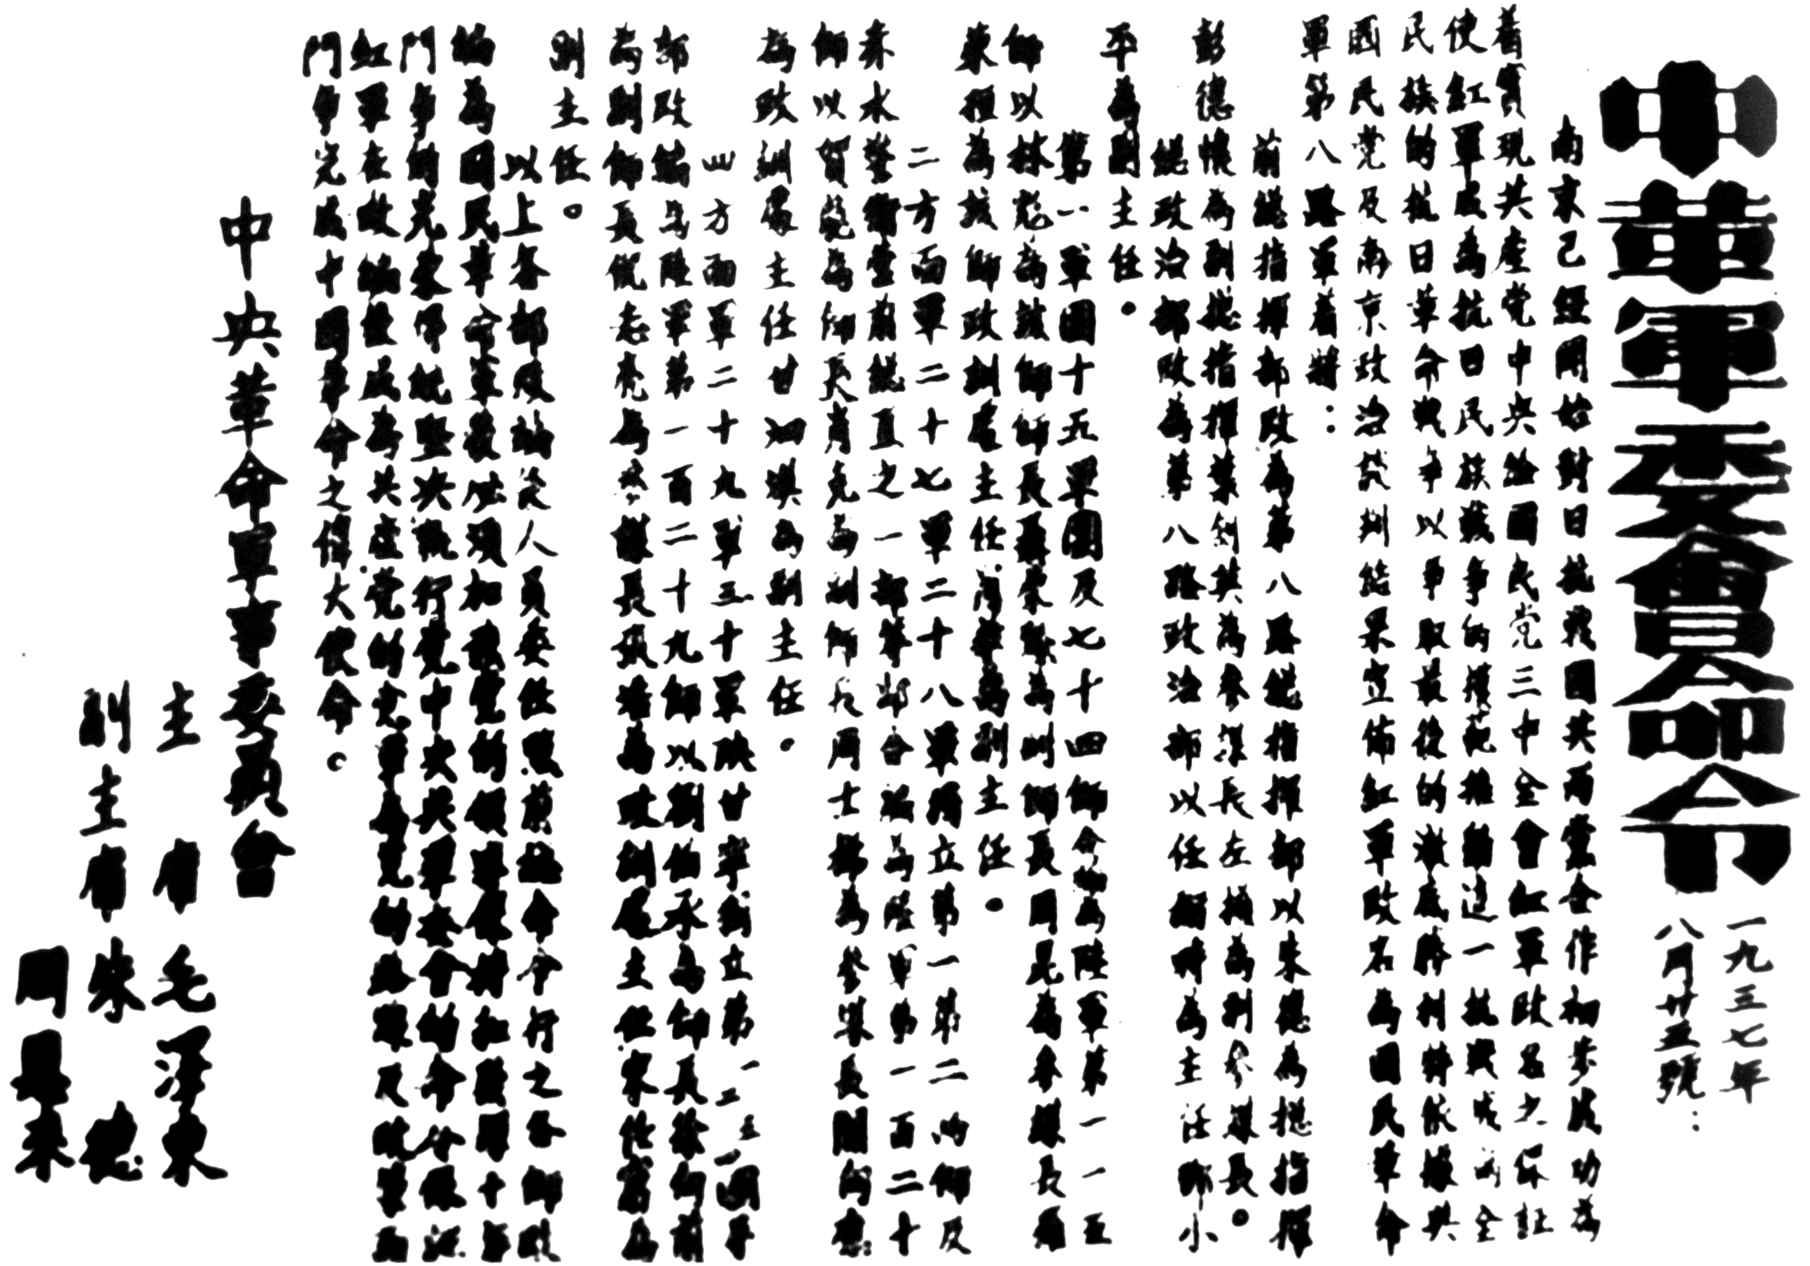 中革軍委會命令
一九三七年
八月廿五號：
南京已經開始對日抗戰國共兩黨合作初步成功為
着實現共產党中央給國民党三中全會紅軍改名之保証
使紅軍成為抗日民族戰爭的模範推動這一抗戰成為全
民族的抗日革命戰爭以爭取最後的澈底勝利特依據與
國民党及南京政治談判結果宣佈紅軍改名為國民革命
軍第八路軍着將：
前總指揮部改為第八路總指揮部以朱德為總指揮
彭德懷為副總指揮葉劍英為參謀長左權為副參謀長。
總政治部改為第八路政治部以任弼時為主任鄧小
平為副主任。
第一軍團十五軍團及七十四師合編為陸軍第一一五
師以林彪為該師師長聶榮臻為副師長周昆為參謀長羅
榮桓為該師政訓處主任肖華為副主任。
二方面軍二十七軍二十八軍獨立第一第二兩師及
赤水警衛營前總直之一部等部合編為陸軍第一百二十
師以賀龍為師長肖克為副師長周士第為參謀長關向應
為政訓處主任甘泗淇為副主任。
四方面軍二十九軍三十軍陝甘寧獨立第一二三四團等
部改編為陸軍第一百二十九師以劉伯承為師長徐向前
為副師長倪志亮為參謀長張浩為政訓處主任宋任窮為
副主任。
以上各部改編後人員委任照前總命令行之各師改
編為國民革命軍後必須加強黨的領導保持和發揚十年
鬥爭的光榮傳統堅決執行党中央與軍委會的命令保証
紅軍在改編後成為共產党的党軍為党的路線及政策而
鬥爭完成中國革命之偉大使命。
中央革命軍事委員會
主席 毛澤東
副主席 朱德
周恩來